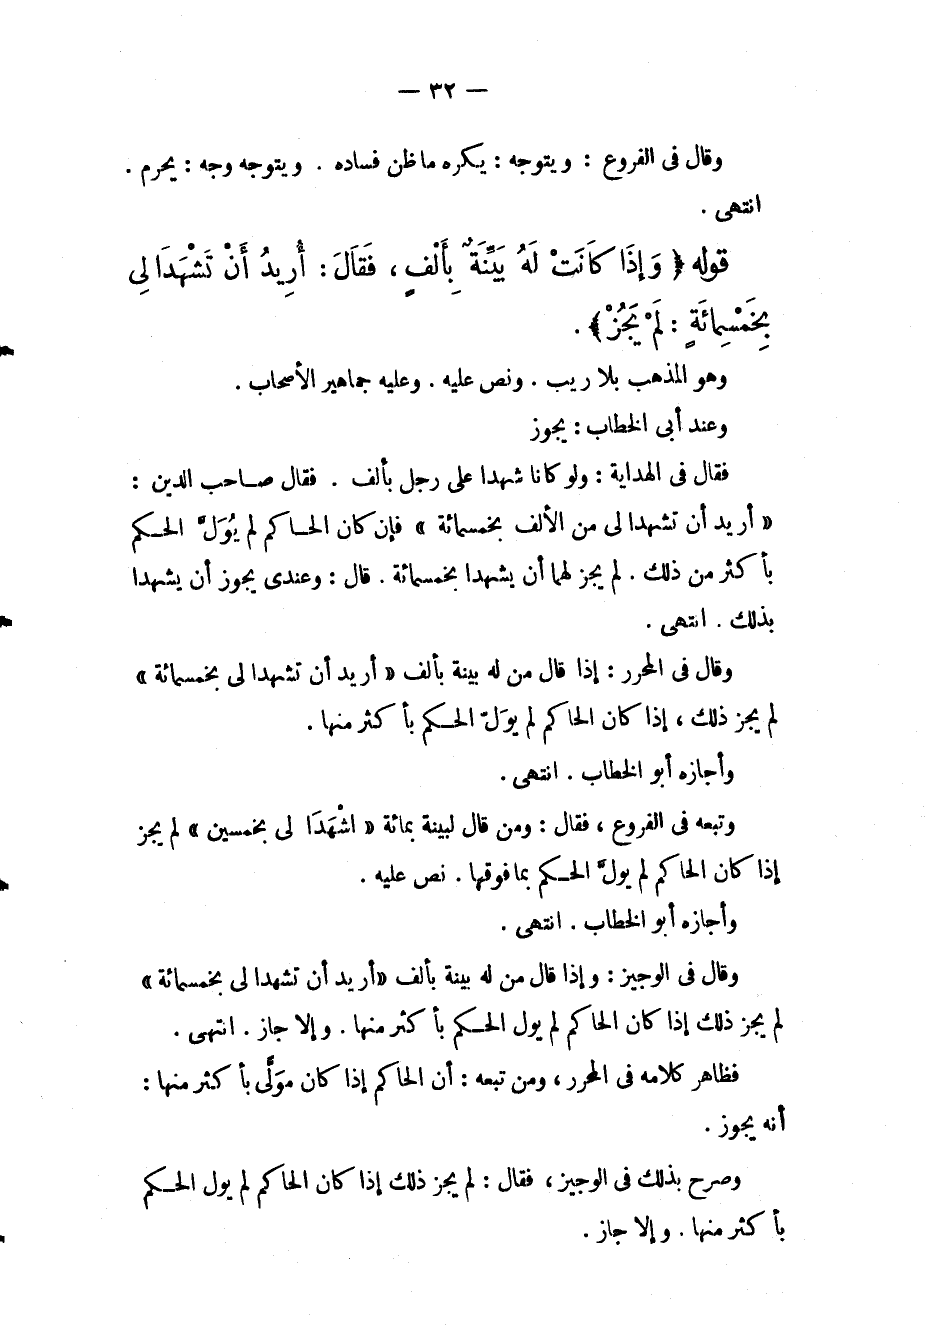 — ٣٢ —
وقال فى الفروع : ويتوجه : يكره ما ظن فساده . ويتوجه وجه : يحرم .
انتهى .
قوله ﴿ وَإِذَا كَانَتْ لَهُ بَيِّنَةٌ بِأَلْفٍ ، فَقَالَ : أُرِيدُ أَنْ تَشْهَدَا لِى
بِخَمْسِمِائَةٍ : لَمْ يَجُزْ ﴾ .
وهو المذهب بلا ريب . ونص عليه . وعليه جماهير الأصحاب .
وعند أبى الخطاب : يجوز
فقال فى الهداية : ولو كانا شهدا على رجل بألف . فقال صاحب الدين :
« أريد أن تشهدا لى من الألف بخمسمائة » فإن كان الحاكم لم يُوَلَّ الحكم
بأكثر من ذلك . لم يجز لهما أن يشهدا بخمسمائة . قال : وعندى يجوز أن يشهدا
بذلك . انتهى .
وقال فى المحرر : إذا قال من له بينة بألف « أريد أن تشهدا لى بخمسمائة »
لم يجز ذلك ، إذا كان الحاكم لم يوَلّ الحكم بأكثر منها .
وأجازه أبو الخطاب . انتهى .
وتبعه فى الفروع ، فقال : ومن قال لبينة بمائة « اشْهَدَا لى بخمسين » لم يجز
إذا كان الحاكم لم يولَّ الحكم بما فوقها . نص عليه .
وأجازه أبو الخطاب . انتهى .
وقال فى الوجيز : وإذا قال من له بينة بألف «أريد أن تشهدا لى بخمسمائة»
لم يجز ذلك إذا كان الحاكم لم يول الحكم بأكثر منها . وإلا جاز . انتهى .
فظاهر كلامه فى المحرر ، ومن تبعه : أن الحاكم إذا كان موَلَّى بأكثر منها :
أنه يجوز .
وصرح بذلك فى الوجيز ، فقال : لم يجز ذلك إذا كان الحاكم لم يول الحكم
بأكثر منها . وإلا جاز .